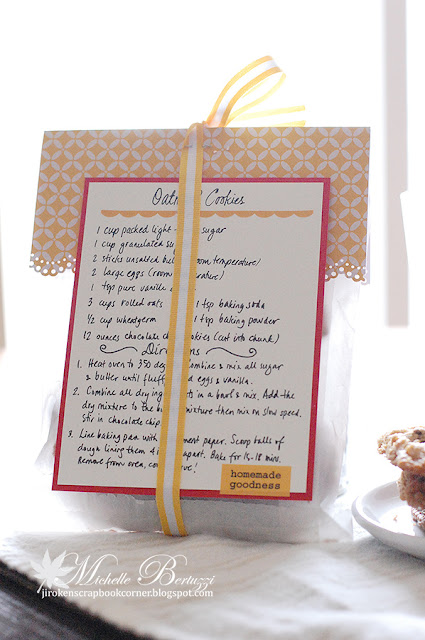 Oatm l Cookies
1 cup packed light sugar
1 cup granulated su
2 sticks unsalted but room temperature)
2 large eggs (room rature)
1 tsp pure vanilla
3 cups rolled oats 1 tsp baking soda
1/2 cup wheatgerm 1 tsp baking powder
12 ounces chocolate ch cookies (cut into chunk)
Dir ns
1. Heat oven to 350 deg Combine & mix all sugar
& butter until fluff d eggs & vanilla.
2. Combine all dry ing ts in a bowl & mix. Add the
dry mixture to the bu mixture then mix on slow speed.
Stir in chocolate chip
3. Line baking pan with ment paper. Scoop balls of
dough lining them 4 i apart. Bake for 15-18 mins.
Remove from oven, co e!
homemade
goodness
Michelle Bertuzzi
jirokenscrapbookcorner.blogspot.com